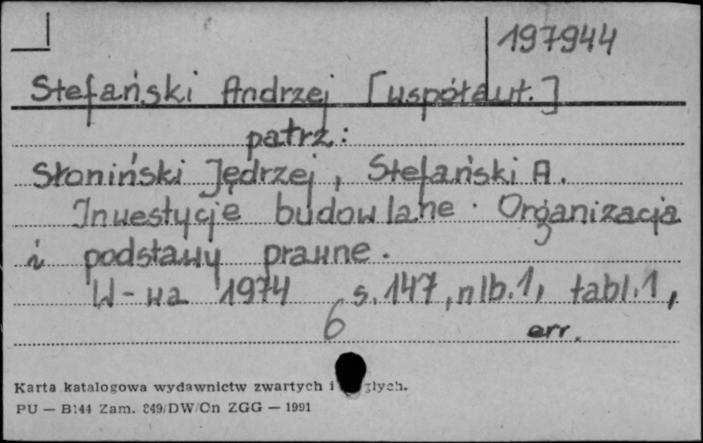 197944
Stefański Andrzej [współaut.]
patrz:
Słoniński Jędrzej, Stefański A.
Inwestycje budowlane. Organizacja
i podstawy prawne.
W-wa 1974 s. 147, nlb. 1, tabl. 1,
6 err.
Karta katalogowa wydawnictw zwartych i
PU — B144 Zam. 849/DW/On ZGG — 1991